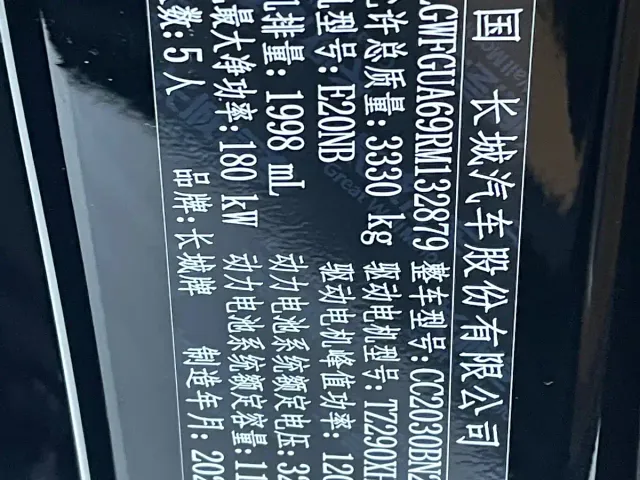 国 长城汽车股份有限公司
LGWFGUA69RM132879 整车型号:CC2030BN2
许总质量: 3330 kg 驱动电机型号:TZ290XH
机型号: E20NB 驱动电机峰值功率: 120
机排量: 1998 mL 动力电池系统额定电压:32
最大净功率: 180 kW 动力电池系统额定容量:11
人数: 5 人 品牌: 长城牌 制造年月: 202
Great Wall